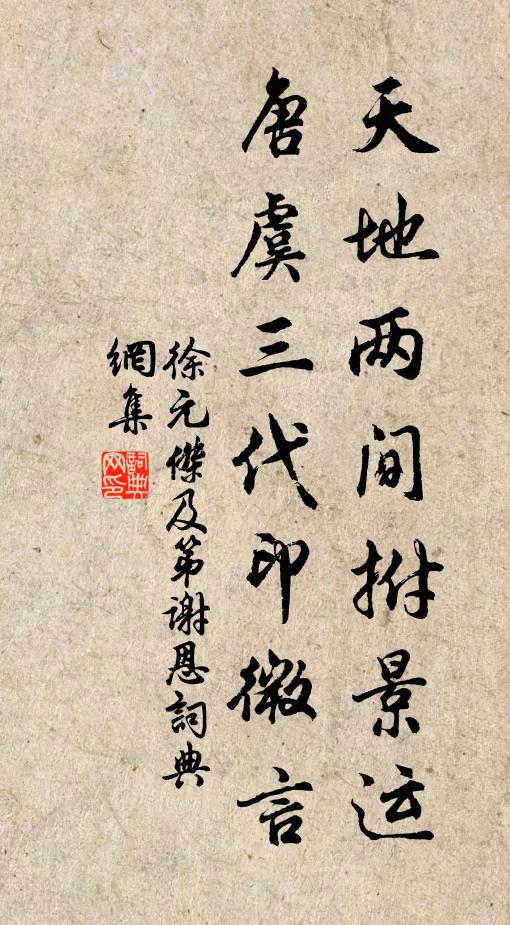 天地两间拊景运
唐虞三代印微言
徐元傑及第谢恩詞典
網集
詞典网印